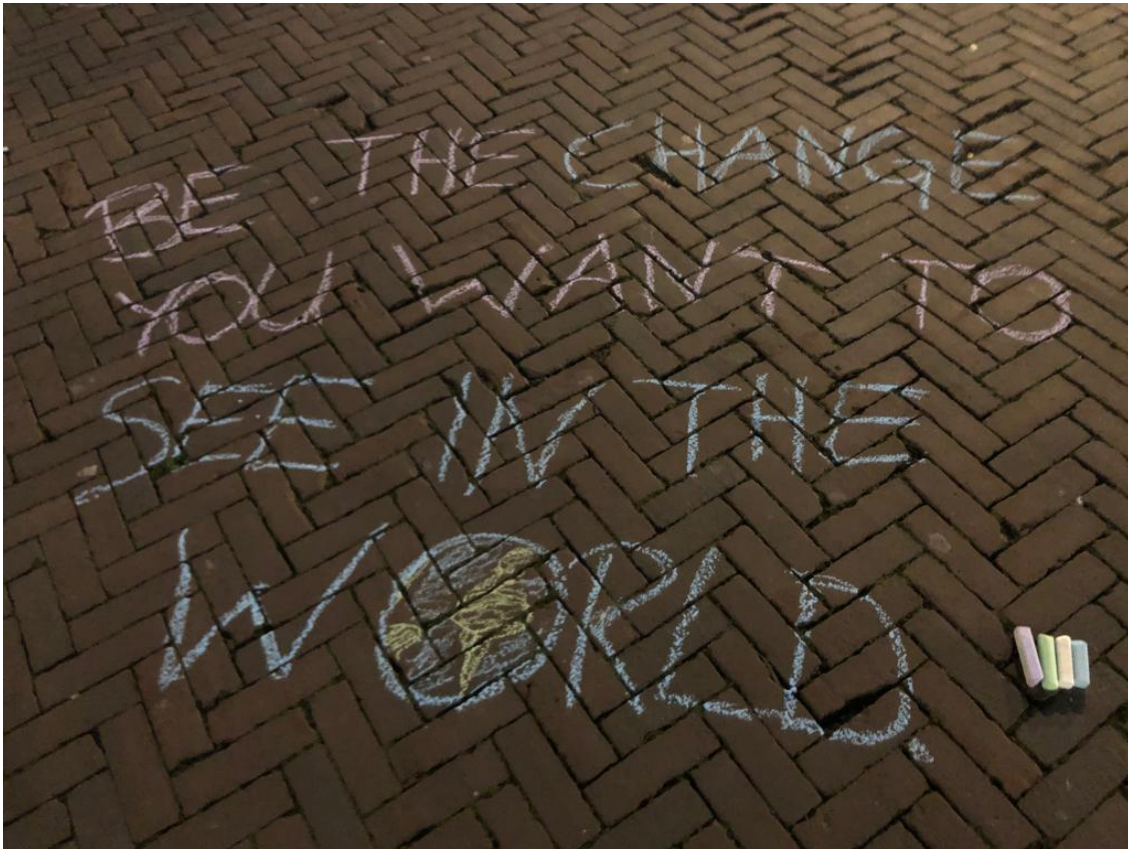 BE THE CHANGE
YOU WANT TO
SEE IN THE
WORLD.